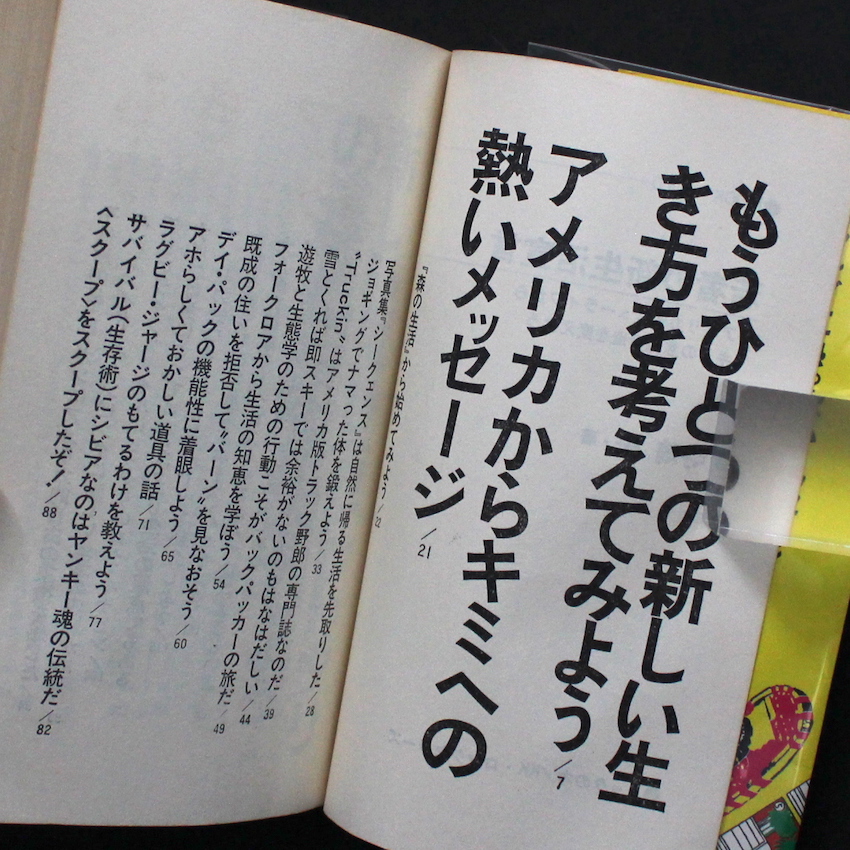 もうひとつの新しい生
き方を考えてみよう/7
アメリカからキミへの
熱いメッセージ/21
『森の生活』から始めてみよう/22
写真集『シークェンス』は自然に帰る生活を先取りした/28
ジョギングでナマった体を鍛えよう/33
“Truckin”はアメリカ版トラック野郎の専門誌なのだ/39
雪とくれば即スキーでは余裕がないのもはなはだしい/44
遊牧と生態学のための行動こそがバックパッカーの旅だ/49
フォークロアから生活の知恵を学ぼう/54
既成の住いを拒否して“バーン”を見なおそう/60
デイ・パックの機能性に着眼しよう/65
アホらしくておかしい道具の話/71
ラグビー・ジャージのもてるわけを教えよう/77
サバイバル(生存術)にシビアなのはヤンキー魂の伝統だ/82
〈スクープ〉をスクープしたぞ!/88